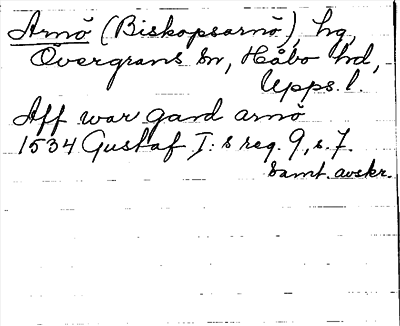 Arnö (Biskopsarnö), hg,
Övergrans sn, Håbo hd,
Upps. l.
Aff war gard arnö
1534 Gustaf I:s reg. 9, s. 7.
Samt. avskr.